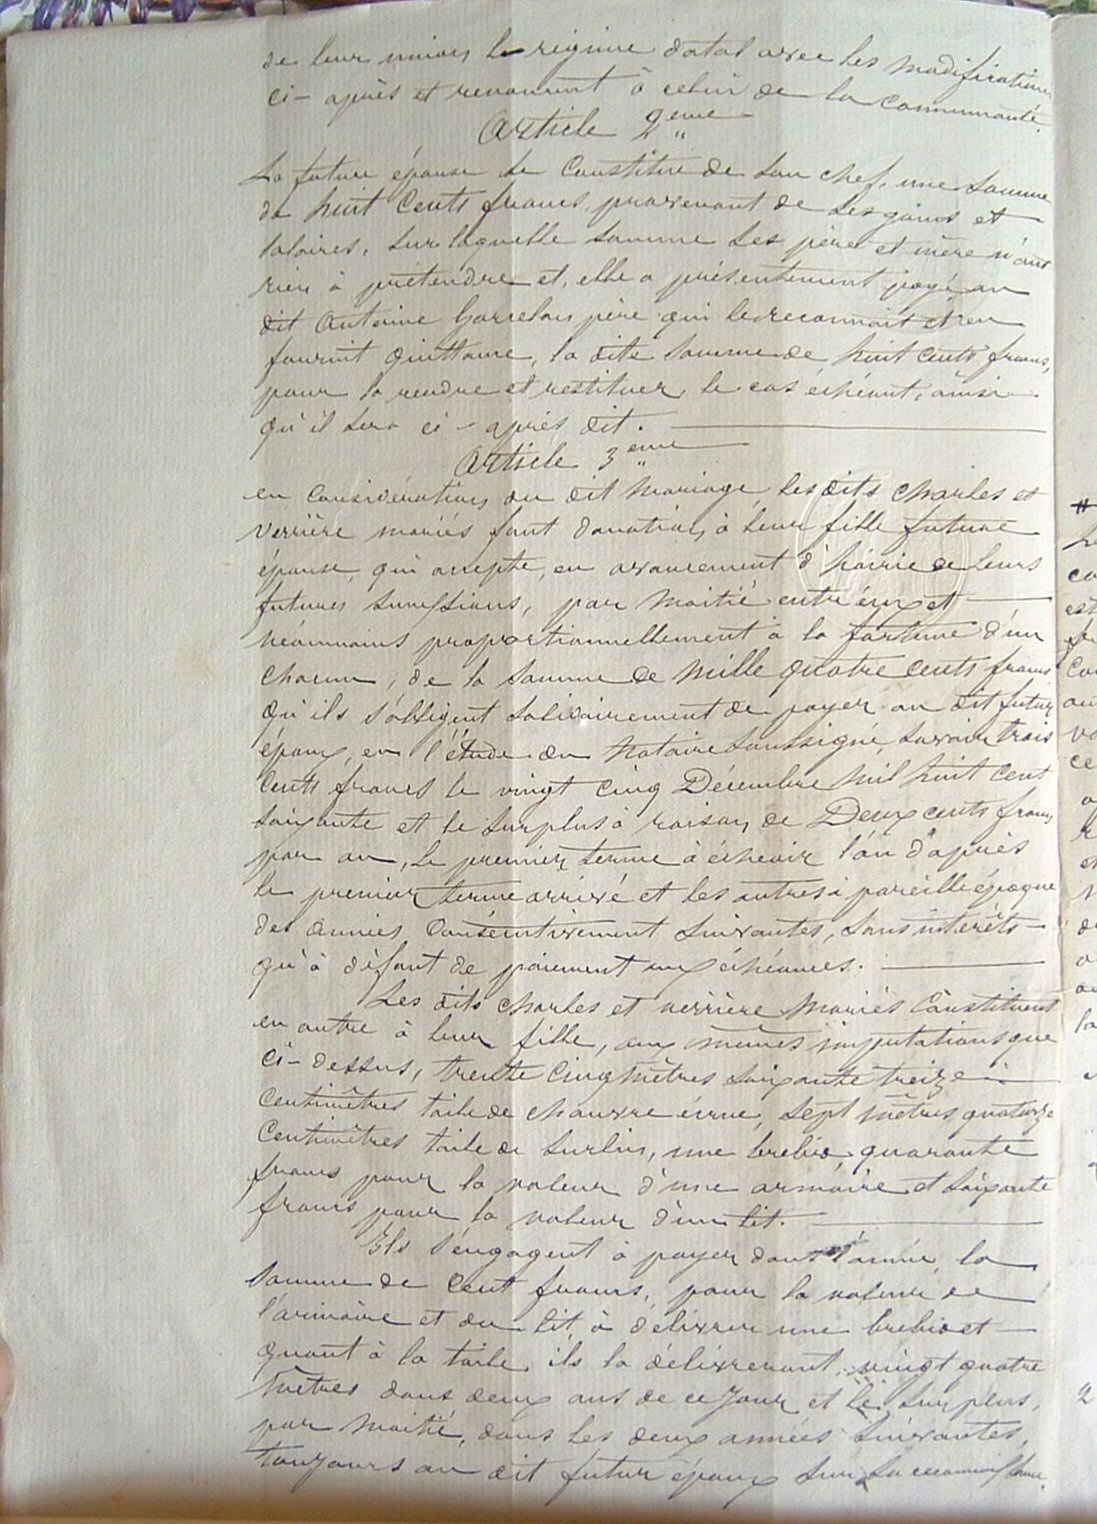 de leur union le régime dotal avec les modifications
ci-après et renoncent à celui de la communauté.
Article 2eme
La future épouse se Constitue de son chef, une somme
de huit Cents francs, provenant de ses gains et
salaires, sur laquelle somme ses père et mère n'ont
rien à prétendre et, elle a présentement payé au
dit Antoine père qui le reconnait et en
fournit quittance, la dite somme de huit Cents francs,
pour la rendre et restituer, le cas échéant, ainsi
qu'il sera ci-après dit.
Article 3eme
en Considération du dit Mariage, les dits Charles et
Verrière mariés font donation, à leur fille future
épouse, qui accepte, en avancement d'hoirie de leurs
futures successions, par moitié entre eux et
néanmoins proportionnellement à la fortune d'un
chacun, de la somme de Mille quatre cents francs
qu'ils s'obligent solidairement de payer au dit futur
époux, en l'étude du Notaire soussigné, savoir, trois
Cents francs le vingt Cinq Décembre Mil huit Cent
soixante et le surplus à raison, de Deux cents francs
par an, le premier terme à échoir l'an d'après
le premier terme arrivé et les autres à pareille époque
des années Consécutivement suivantes, sans intérêts
qu'à défaut de paiement aux échéances.
Les dits Charles et verrière Mariés Constituent
en outre à leur fille, aux mêmes imputations que
ci-dessus, trente Cinq Mètres soixante treize
Centimètres toile de chanvre écrue, sept Mètres quatorze
Centimètres toile de surlin, une brebis, quarante
francs pour la valeur d'une armoire et soixante
francs pour la valeur d'un lit.
Ils s'engagent à payer dans l'année, la
somme de Cent francs, pour la valeur de
l'armoire et du lit, à délivrer une brebis et
quant à la toile ils la délivreront, vingt quatre
Mètres dans deux ans de ce Jour et le surplus,
par Moitié, dans les deux années suivantes,
toujours au dit futur époux sur sa reconnaissance.